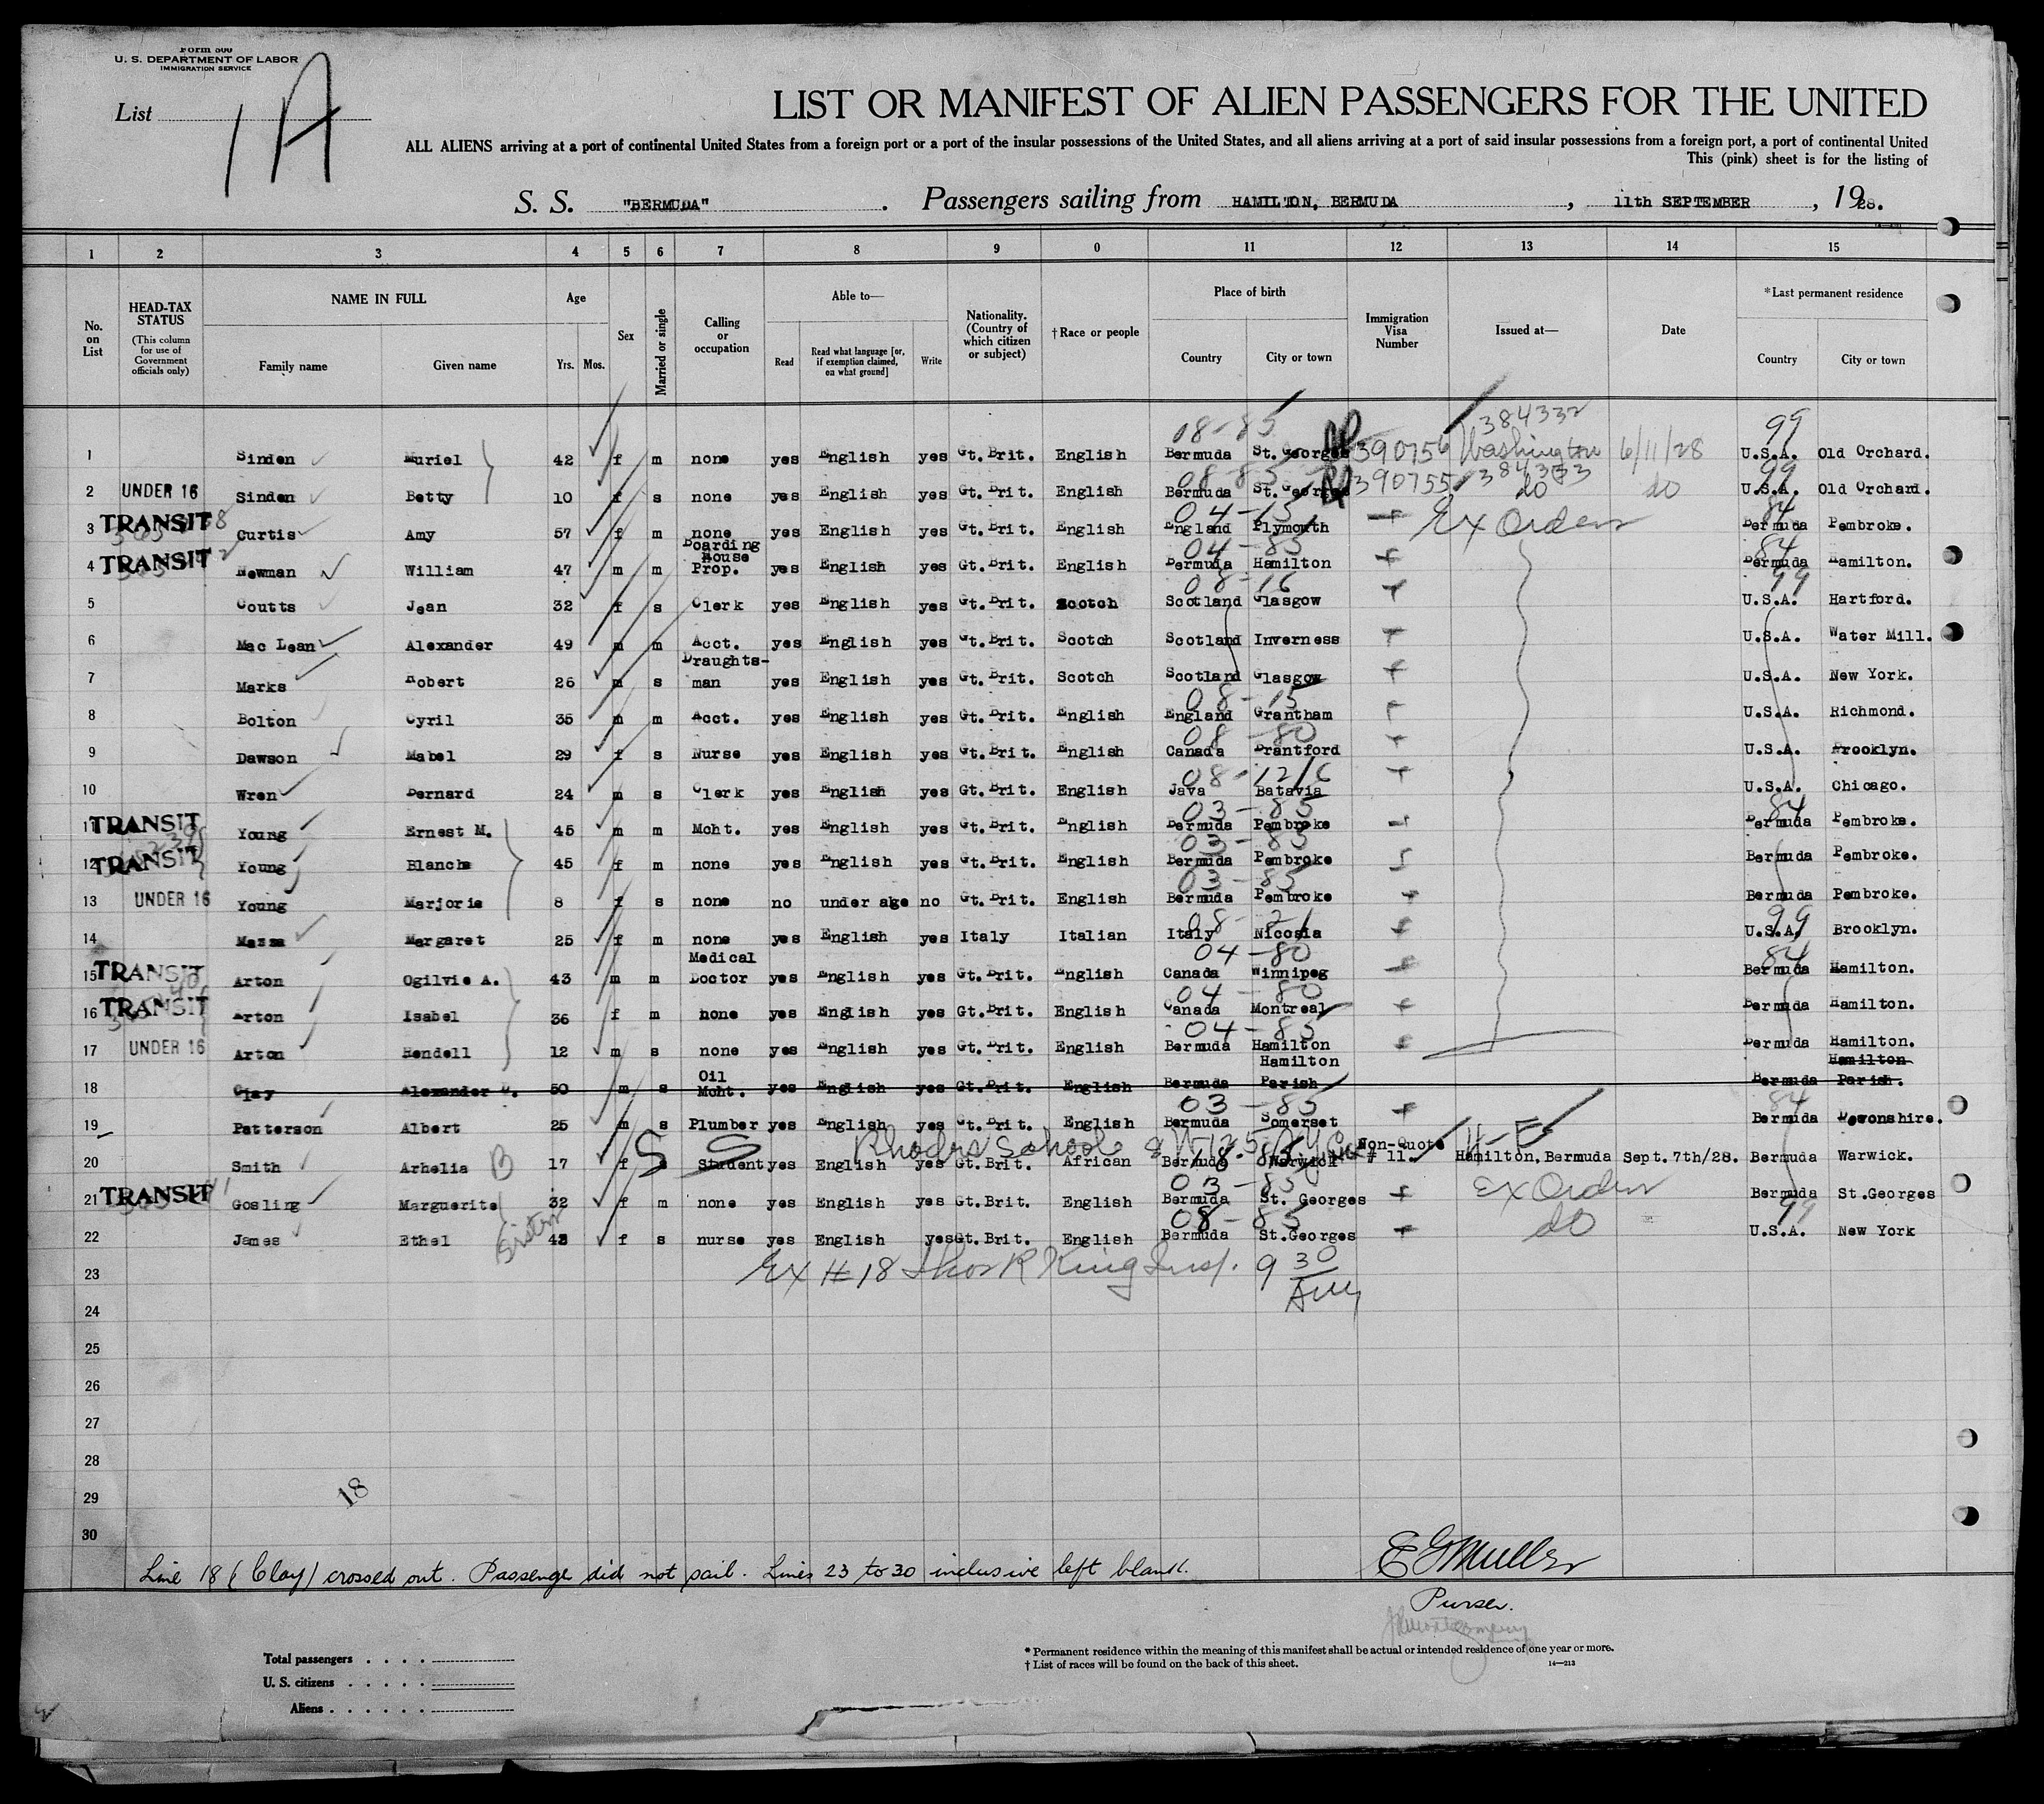 Form 500
U. S. DEPARTMENT OF LABOR
IMMIGRATION SERVICE
List 1A
LIST OR MANIFEST OF ALIEN PASSENGERS FOR THE UNITED
ALL ALIENS arriving at a port of continental United States from a foreign port or a port of the insular possessions of the United States, and all aliens arriving at a port of said insular possessions from a foreign port, a port of continental United
This (pink) sheet is for the listing of
S. S. "BERMUDA". Passengers sailing from HAMILTON, BERMUDA, 11th SEPTEMBER, 1928.
1 2 3 4 5 6 7 8 9 0 11 12 13 14 15
No. on List HEAD-TAX STATUS (This column for use of Government officials only) NAME IN FULL Family name Given name Age Yrs. Mos. Sex Married or single Calling or occupation Able to— Read Read what language [or, if exemption claimed, on what ground] Write Nationality. (Country of which citizen or subject) †Race or people Place of birth Country City or town Immigration Visa Number Issued at— Date *Last permanent residence Country City or town
08-85 384332 99
1 Sinden Muriel 42 f m none yes English yes Gt. Brit. English Bermuda St. Georges 390756 Washington 6/11/28 U.S.A. Old Orchard.
08-85 384333 99
2 UNDER 16 Sinden Betty 10 f s none yes English yes Gt. Brit. English Bermuda St. Georges 390755 do do U.S.A. Old Orchard.
04-15 84
3 TRANSIT Curtis Amy 57 f m none yes English yes Gt. Brit. English England Plymouth Ex Orden Bermuda Pembroke.
04-85 84
4 TRANSIT Newman William 47 m m Boarding House Prop. yes English yes Gt. Brit. English Bermuda Hamilton Bermuda Hamilton.
08-16 99
5 Coutts Jean 32 f s Clerk yes English yes Gt. Brit. Scotch Scotland Glasgow U.S.A. Hartford.
6 Mac Lean Alexander 49 m m Acct. yes English yes Gt. Brit. Scotch Scotland Inverness U.S.A. Water Mill.
7 Marks Robert 26 m s Draughts-man yes English yes Gt. Brit. Scotch Scotland Glasgow U.S.A. New York.
08-15
8 Bolton Cyril 35 m m Acct. yes English yes Gt. Brit. English England Grantham U.S.A. Richmond.
08-80
9 Dawson Mabel 29 f s Nurse yes English yes Gt. Brit. English Canada Brantford U.S.A. Brooklyn.
08-1216
10 Wren Bernard 24 m s Clerk yes English yes Gt. Brit. English Java Batavia U.S.A. Chicago.
03-85 84
11 TRANSIT Young Ernest M. 45 m m Mcht. yes English yes Gt. Brit. English Bermuda Pembroke Bermuda Pembroke.
03-85
12 TRANSIT Young Blanche 45 f m none yes English yes Gt. Brit. English Bermuda Pembroke Bermuda Pembroke.
03-85
13 UNDER 16 Young Marjorie 8 f s none no under age no Gt. Brit. English Bermuda Pembroke Bermuda Pembroke.
08-21 99
14 Mazza Margaret 25 f m none yes English yes Italy Italian Italy Nicosia U.S.A. Brooklyn.
04-80 84
15 TRANSIT Arton Ogilvie A. 43 m m Medical Doctor yes English yes Gt. Brit. English Canada Winnipeg Bermuda Hamilton.
04-80
16 TRANSIT Arton Isabel 36 f m none yes English yes Gt. Brit. English Canada Montreal Bermuda Hamilton.
04-85
17 UNDER 16 Arton Hendell 12 m s none yes English yes Gt. Brit. English Bermuda Hamilton Bermuda Hamilton.
18 Clay Alexander 50 m s Oil Mcht. yes English yes Gt. Brit. English Bermuda Hamilton Parish Bermuda Hamilton Parish.
03-85 84
19 Patterson Albert 25 m s Plumber yes English yes Gt. Brit. English Bermuda Somerset Bermuda Devonshire.
Rhodes School
20 Smith Arhelia B 17 f s Student yes English yes Gt. Brit. African Bermuda Warwick Non-Quote # 11. Hamilton, Bermuda Sept. 7th/28. Bermuda Warwick.
03-85
21 TRANSIT Gosling Marguerite 32 f m none yes English yes Gt. Brit. English Bermuda St. Georges Ex Orden Bermuda St.Georges
08-85 99
22 James Ethel sister 43 f s nurse yes English yes Gt. Brit. English Bermuda St.Georges do U.S.A. New York
23 Ex #18 Thos R King Insp. 9 30 Am
24
25
26
27
28
29
18
30
Line 18 (Clay) crossed out. Passenge did not sail. Lines 23 to 30 inclusive left blank.
E G Muller
Purser.
Total passengers
U. S. citizens
Aliens
* Permanent residence within the meaning of this manifest shall be actual or intended residence of one year or more.
† List of races will be found on the back of this sheet.
14—213